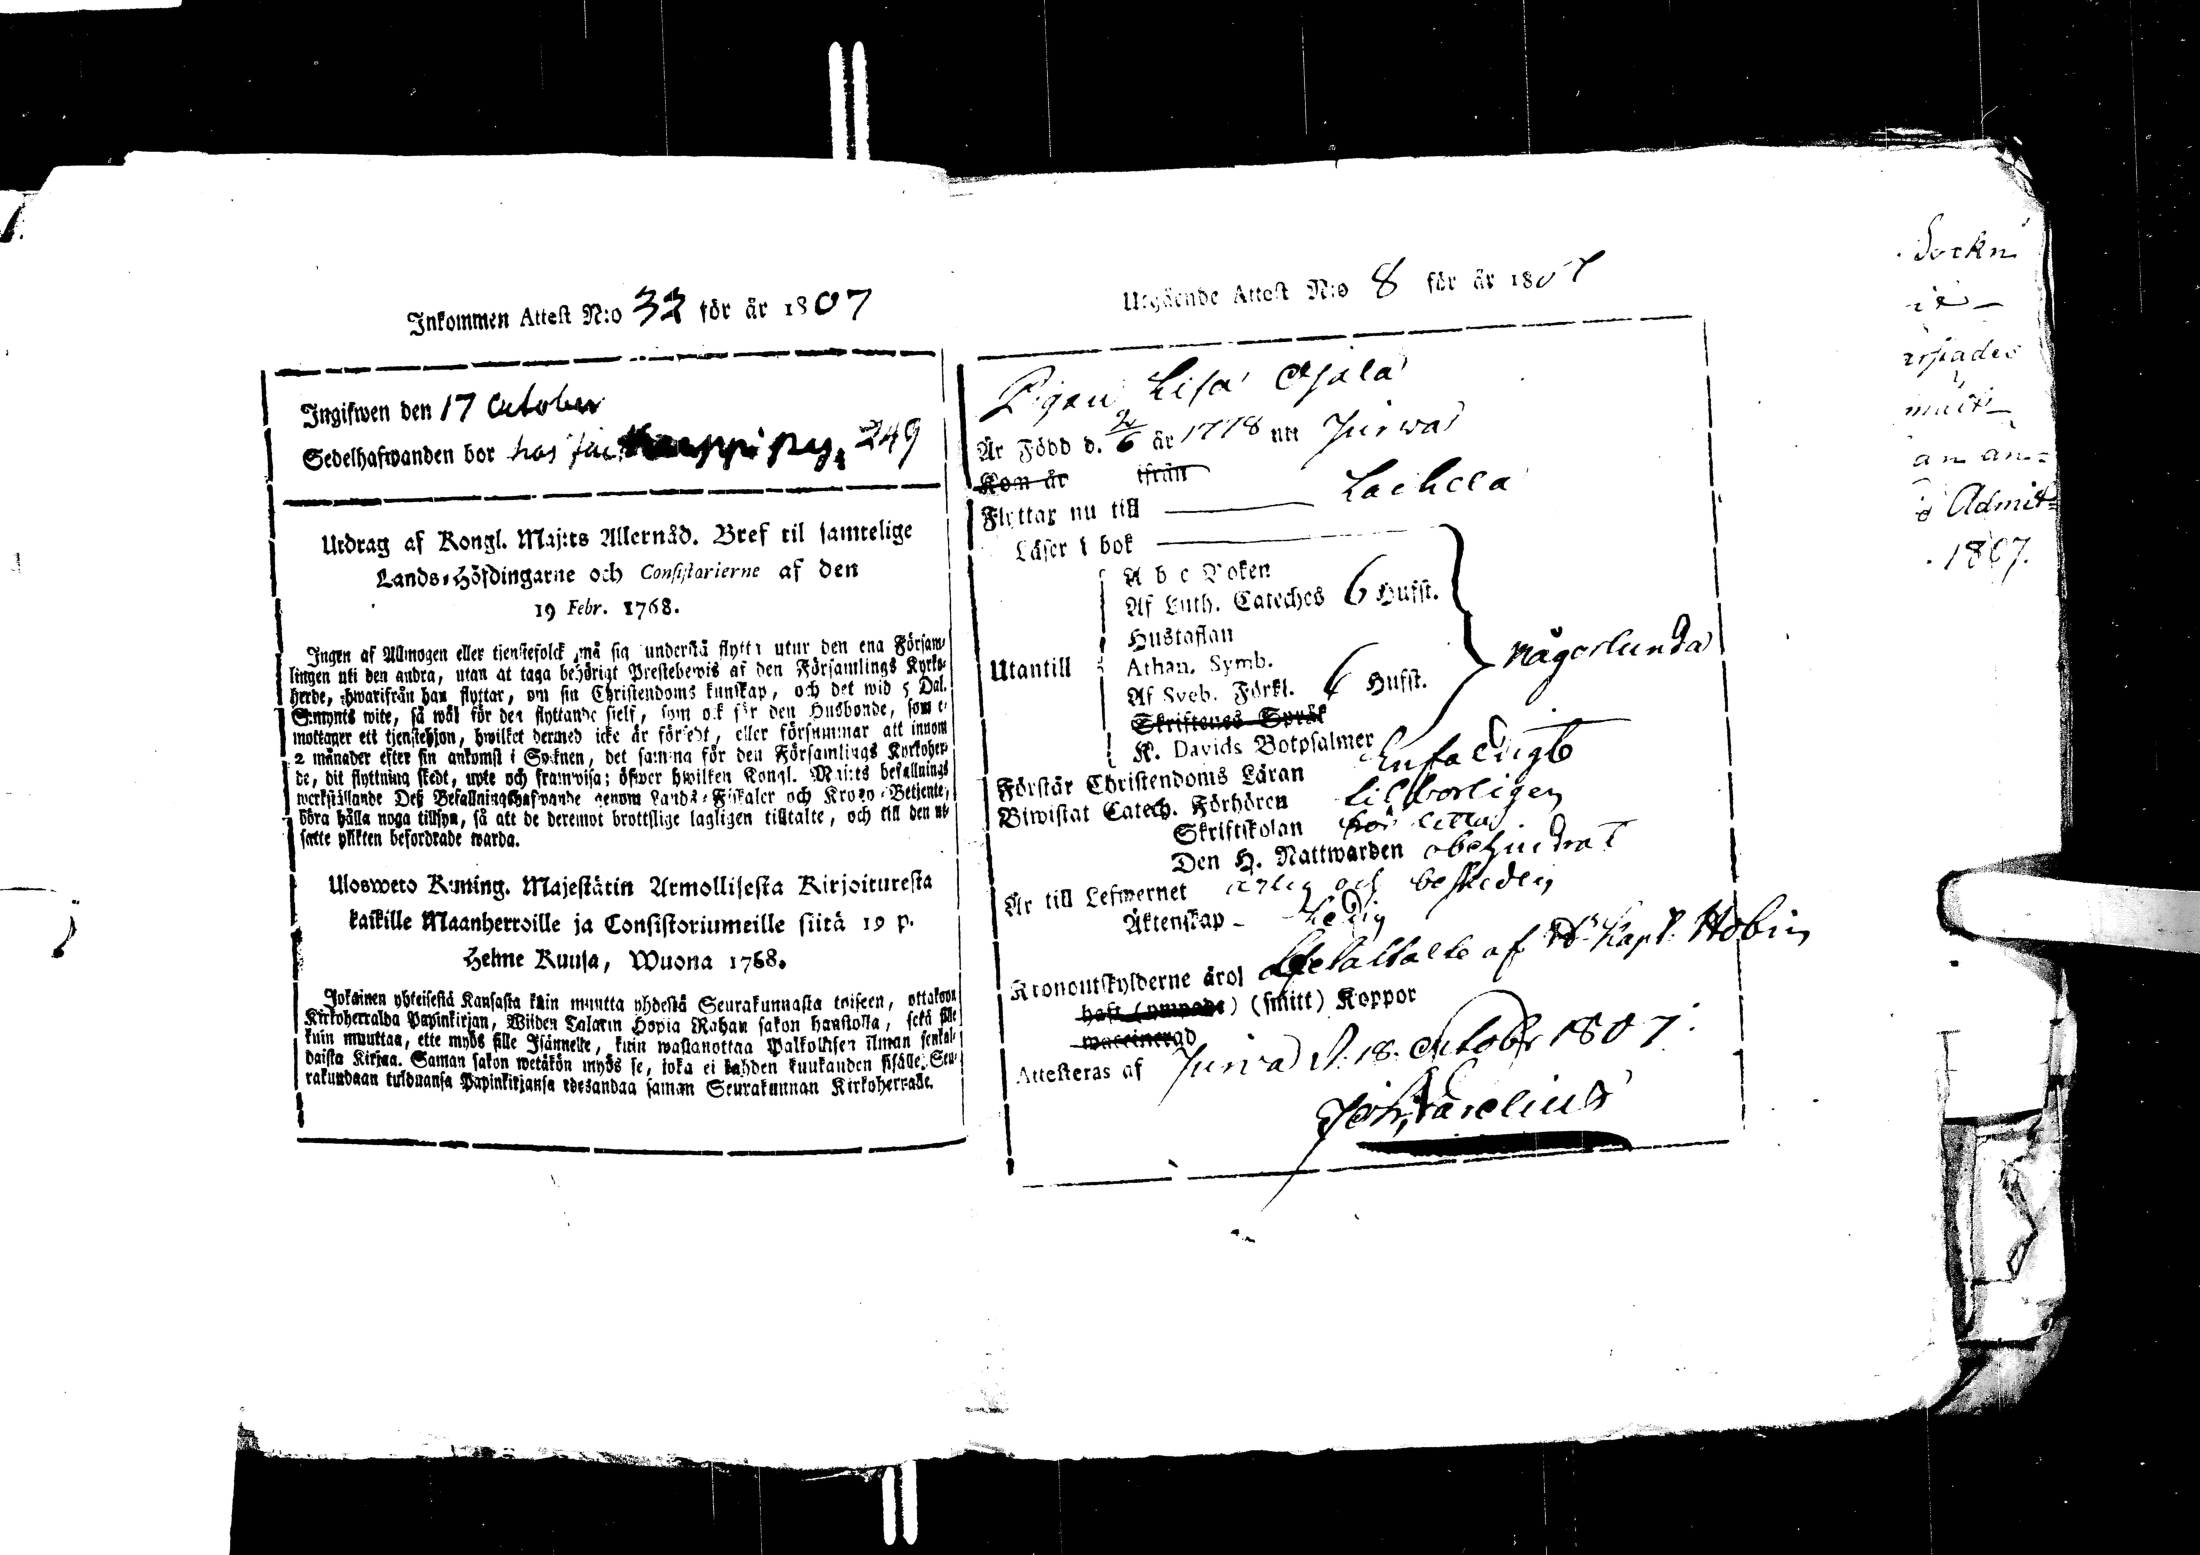 Inkommen Attest N:o 32 för år 1807
Ingifwen den 17 October
Sedelhafwanden bor hos 249
Utdrag af Kongl. Maj:ts Allernåd. Bref til samtelige
Lands-Höfdingarne och Consistorierne af den
19 Febr. 1768.
Ingen af Allmogen eller tjenstefolck må sig understå flytta utur den ena Försam-
lingen uti den andra, utan at taga behörigt Prestebewis af den Församlings Kyrko-
herde, hwarifrån han flyttar, om sin Christendoms kunskap, och det wid 5 Dal.
S:mynts wite, så wäl för den flyttande sielf, som ock för den Husbonde, som e-
mottager ett tjenstehjon, hwilket dermed icke är försedt, eller försummar att innom
2 månader efter sin ankomst i Socknen, det samma för den Församlings Kyrkoher-
de, dit flyttning skedt, upte och framwisa; öfwer hwilken Kongl. Maj:ts befallnings
werkställande Deß Befallningshafwande genom Lands-Fiskaler och Krono-Betjente,
böra hålla noga tillsyn, så att de deremot brottslige lagligen tilltalte, och till den ut-
satte plikten befordrade warda.
Ulosweto Kuning. Majestätin Armollisesta Kirjoituresta
kaikille Maanherroille ja Consistoriumeille siitä 19 p.
Helme Kuusa, Wuona 1768.
Jokainen yhteisestä Kansasta kuin muutta yhdestä Seurakunnasta toiseen, ottakoon
Kirkoherralda Papinkirjan, Wiiden Talarin Hopia Rahan sakon haastolla, sekä sille
kuin muuttaa, ette myös sille Isännelle, kuin wastanottaa Palkollisen ilman senkal-
daista Kirjaa. Saman sakon wetäkön myös se, joka ei kahden kuukauden sisälle, Seu-
rakundaan tulduansa Papinkirjansa edesandaa saman Seurakunnan Kirkoherralle.
Utgående Attest N:o 8 för år 1807
Pigan Lisa Ojala
Är Född d. 2/6 år 1778 uti Jurwa
Kom år ifrån
Flyttar nu till Laihela
Läser i bok
A b c Boken
Af Luth. Cateches 6 Hufst.
Hustaflan
Utantill Athan. Symb. någorlunda
Af Sveb. Förkl. 6 Hufst.
Skriftenes Språk
K. Davids Botpsalmer
Förstår Christendoms Läran Enfaldigt
Biwistat Catech. Förhören tilbörligen
Skriftskolan
Den H. Nattwarden obehindrat
Är till Lefwernet ärlig och beskedlig
Äktenskap - Ledig
Kronoutskylderne äro betaltalte af Kapt. Hobin
haft (ympade) (smitt) Koppor
waccinerad
Attesteras af Jurva d. 18. October 1807.
Sockn
an an=
Admit=
1807.